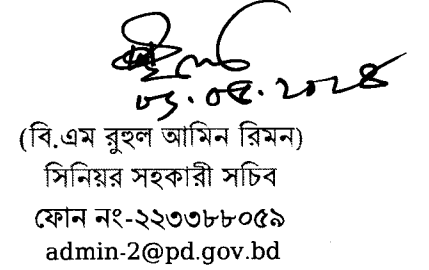 (বি.এম রুহুল আমিন রিমন)
সিনিয়র সহকারী সচিব
ফোন নং-২২৩৩৮৮০৫৯
admin-2@pd.gov.bd